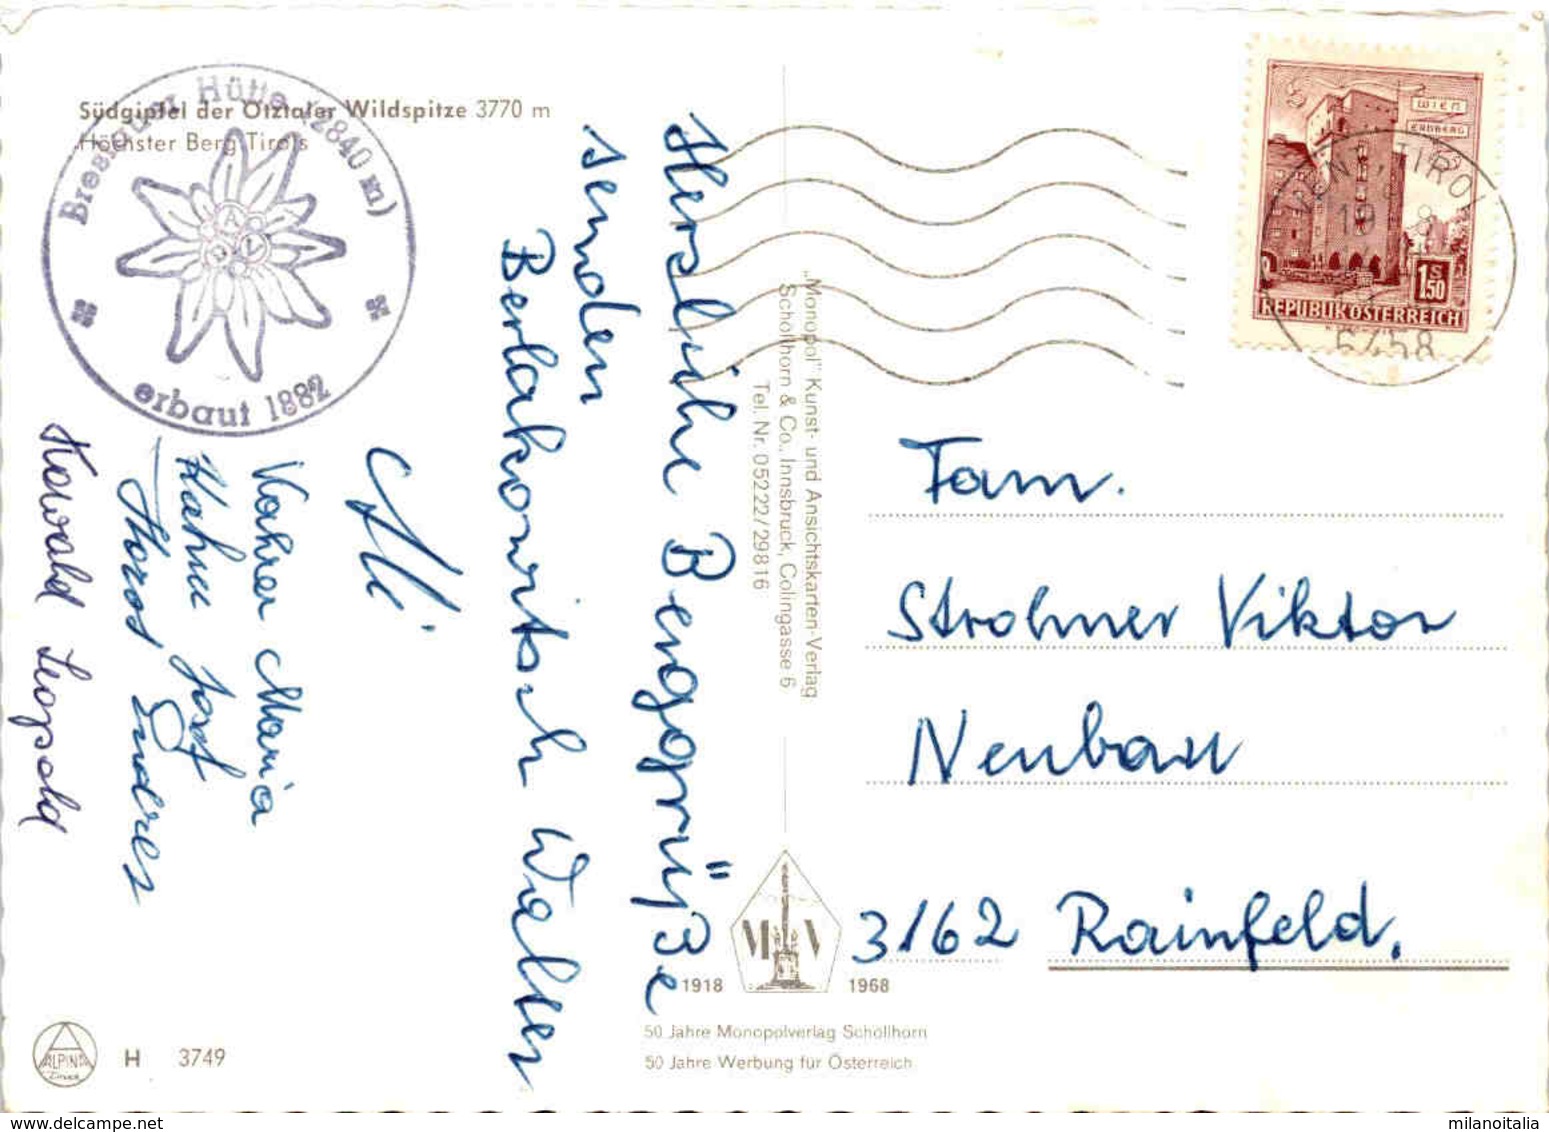 Südgipfel der Ötztaler Wildspitze 3770 m
Höchster Berg Tirols
Breslauer Hütte (2840 m)
erbaut 1882
Herzliche Bergsgrüße
senden
Berlakowitsch Walter
Alfi
Vahrer Maria
Hahn Josef
Kowald Leopold
"Monopol" Kunst- und Ansichtskarten-Verlag
Schöllhorn & Co., Innsbruck, Colingasse 6
Tel. Nr. 05222/29816
WIEN
ERDBERG
S
1.50
REPUBLIK ÖSTERREICH
VENT, TIROL
6458
Fam.
Strohmer Viktor
Neubau
3162 Rainfeld.
M V
1918 1968
50 Jahre Monopolverlag Schöllhorn
50 Jahre Werbung für Österreich
ALPINA
Druck
H 3749
www.delcampe.net
milanoitalia